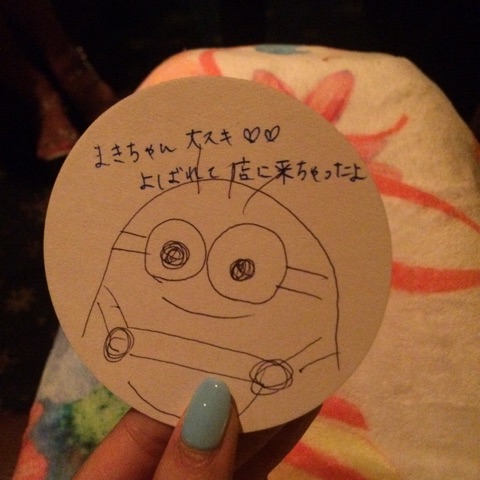 まきちゃん 大スキ♡♡
よしばれて 店に来ちゃったよ